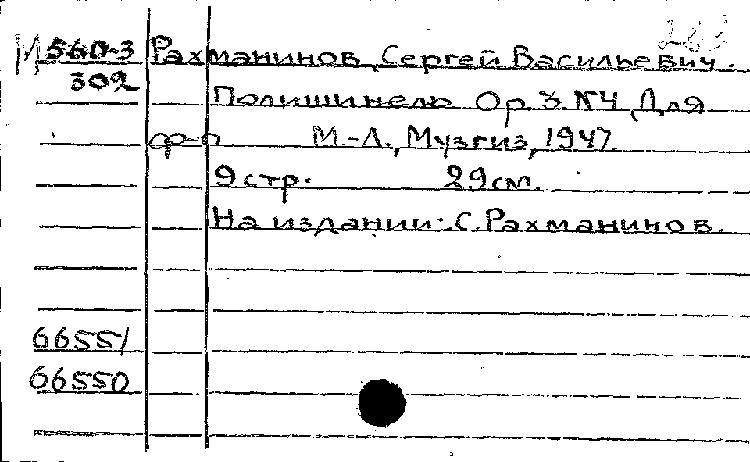 М 560-3 Рахманинов, Сергей Васильевич.
302
Полишинель Ор. 3. №4 Для
ф-п М.-Л., Музгиз, 1947.
9 стр. 29 см.
На издании: С. Рахманинов.
66551
66550